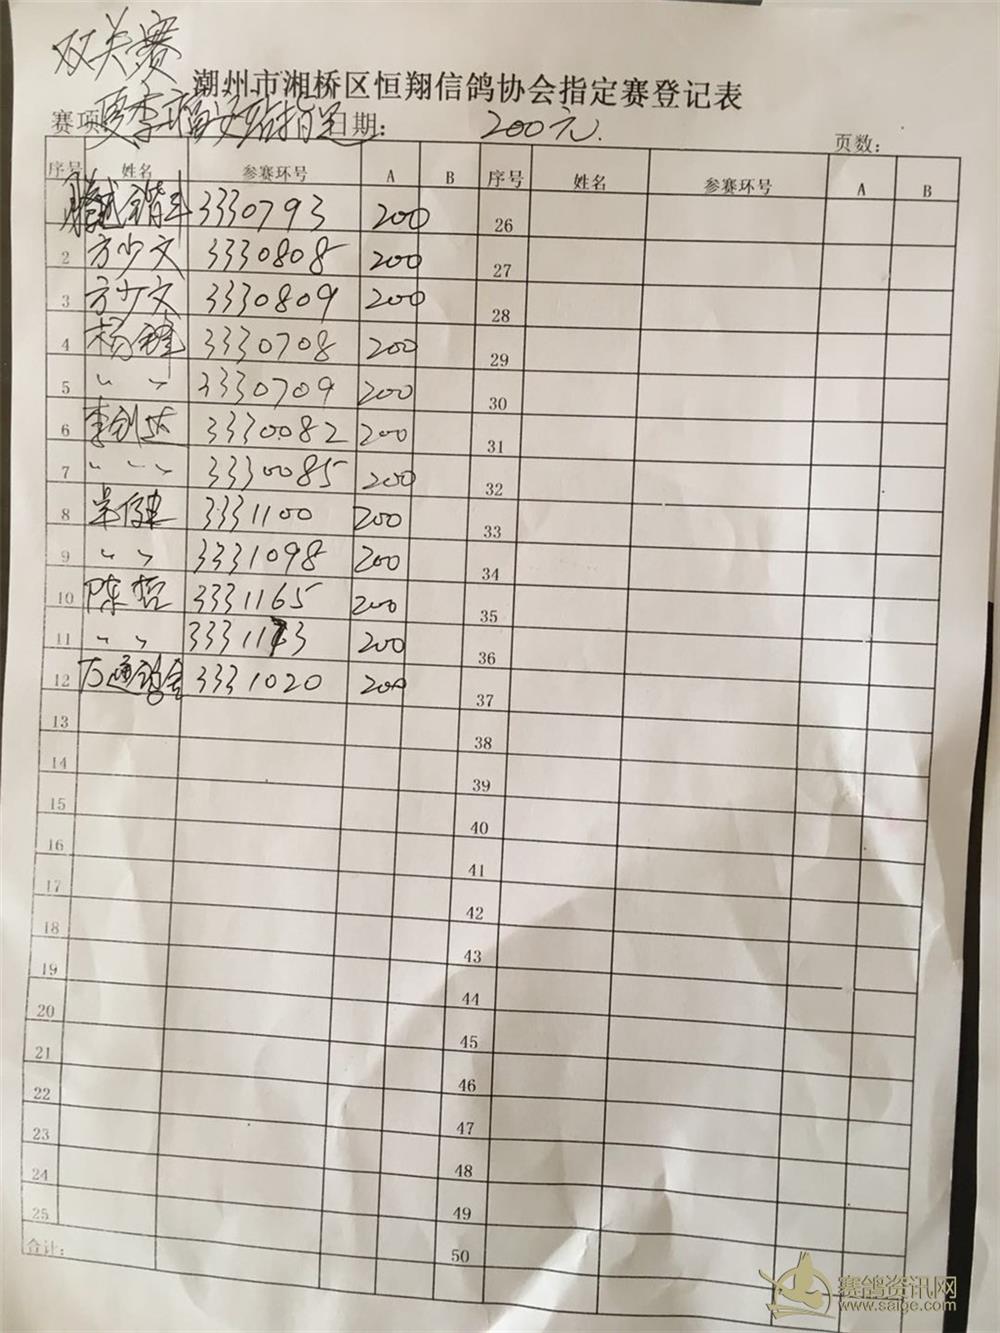 双关赛
潮州市湘桥区恒翔信鸽协会指定赛登记表
赛项 夏季 指定 日期： 200元.
页数：
序号 姓名 参赛环号 A B 序号 姓名 参赛环号 A B
3330793 200 26
2 方少文 3330808 200 27
3 方少文 3330809 200 28
4 杨锋 3330708 200 29
5 〃 〃 3330709 200 30
6 李创达 3330082 200 31
7 〃 〃 〃 3330085 200 32
8 3331100 200 33
9 〃 〃 3331098 200 34
10 陈哲 3331165 200 35
11 〃 〃 3331173 200 36
12 万通鸽舍 3331020 200 37
13 38
14 39
15 40
16 41
17 42
18 43
19 44
20 45
21 46
22 47
23 48
24 49
25 50
合计：
赛鸽资讯网
www.saige.com